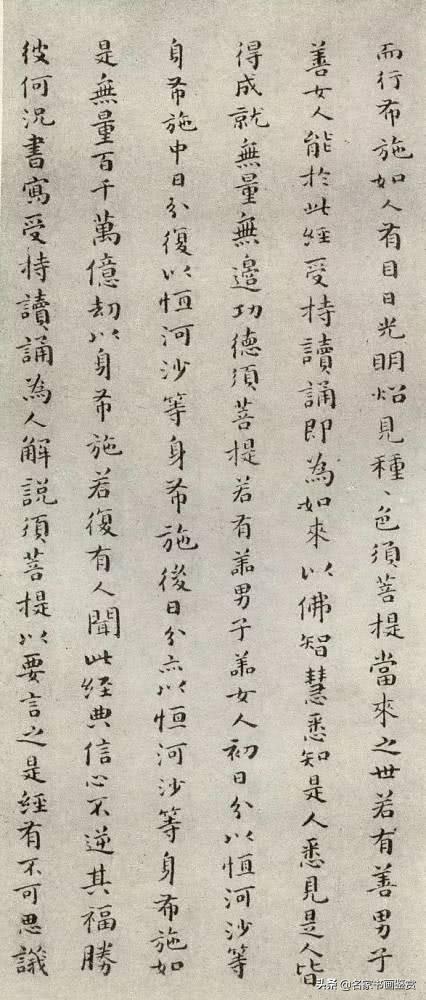 而行布施如人有目日光明炤見種〻色須菩提當來之世若有善男子
善女人能於此經受持讀誦即為如來以佛智慧悉知是人悉見是人皆
得成就無量無邊功德須菩提若有善男子善女人初日分以恒河沙等
身布施中日分復以恒河沙等身布施後日分亦以恒河沙等身布施如
是無量百千萬億劫以身布施若復有人聞此經典信心不逆其福勝
彼何況書寫受持讀誦為人解説須菩提以要言之是經有不可思議
头条 @名家书画鉴赏